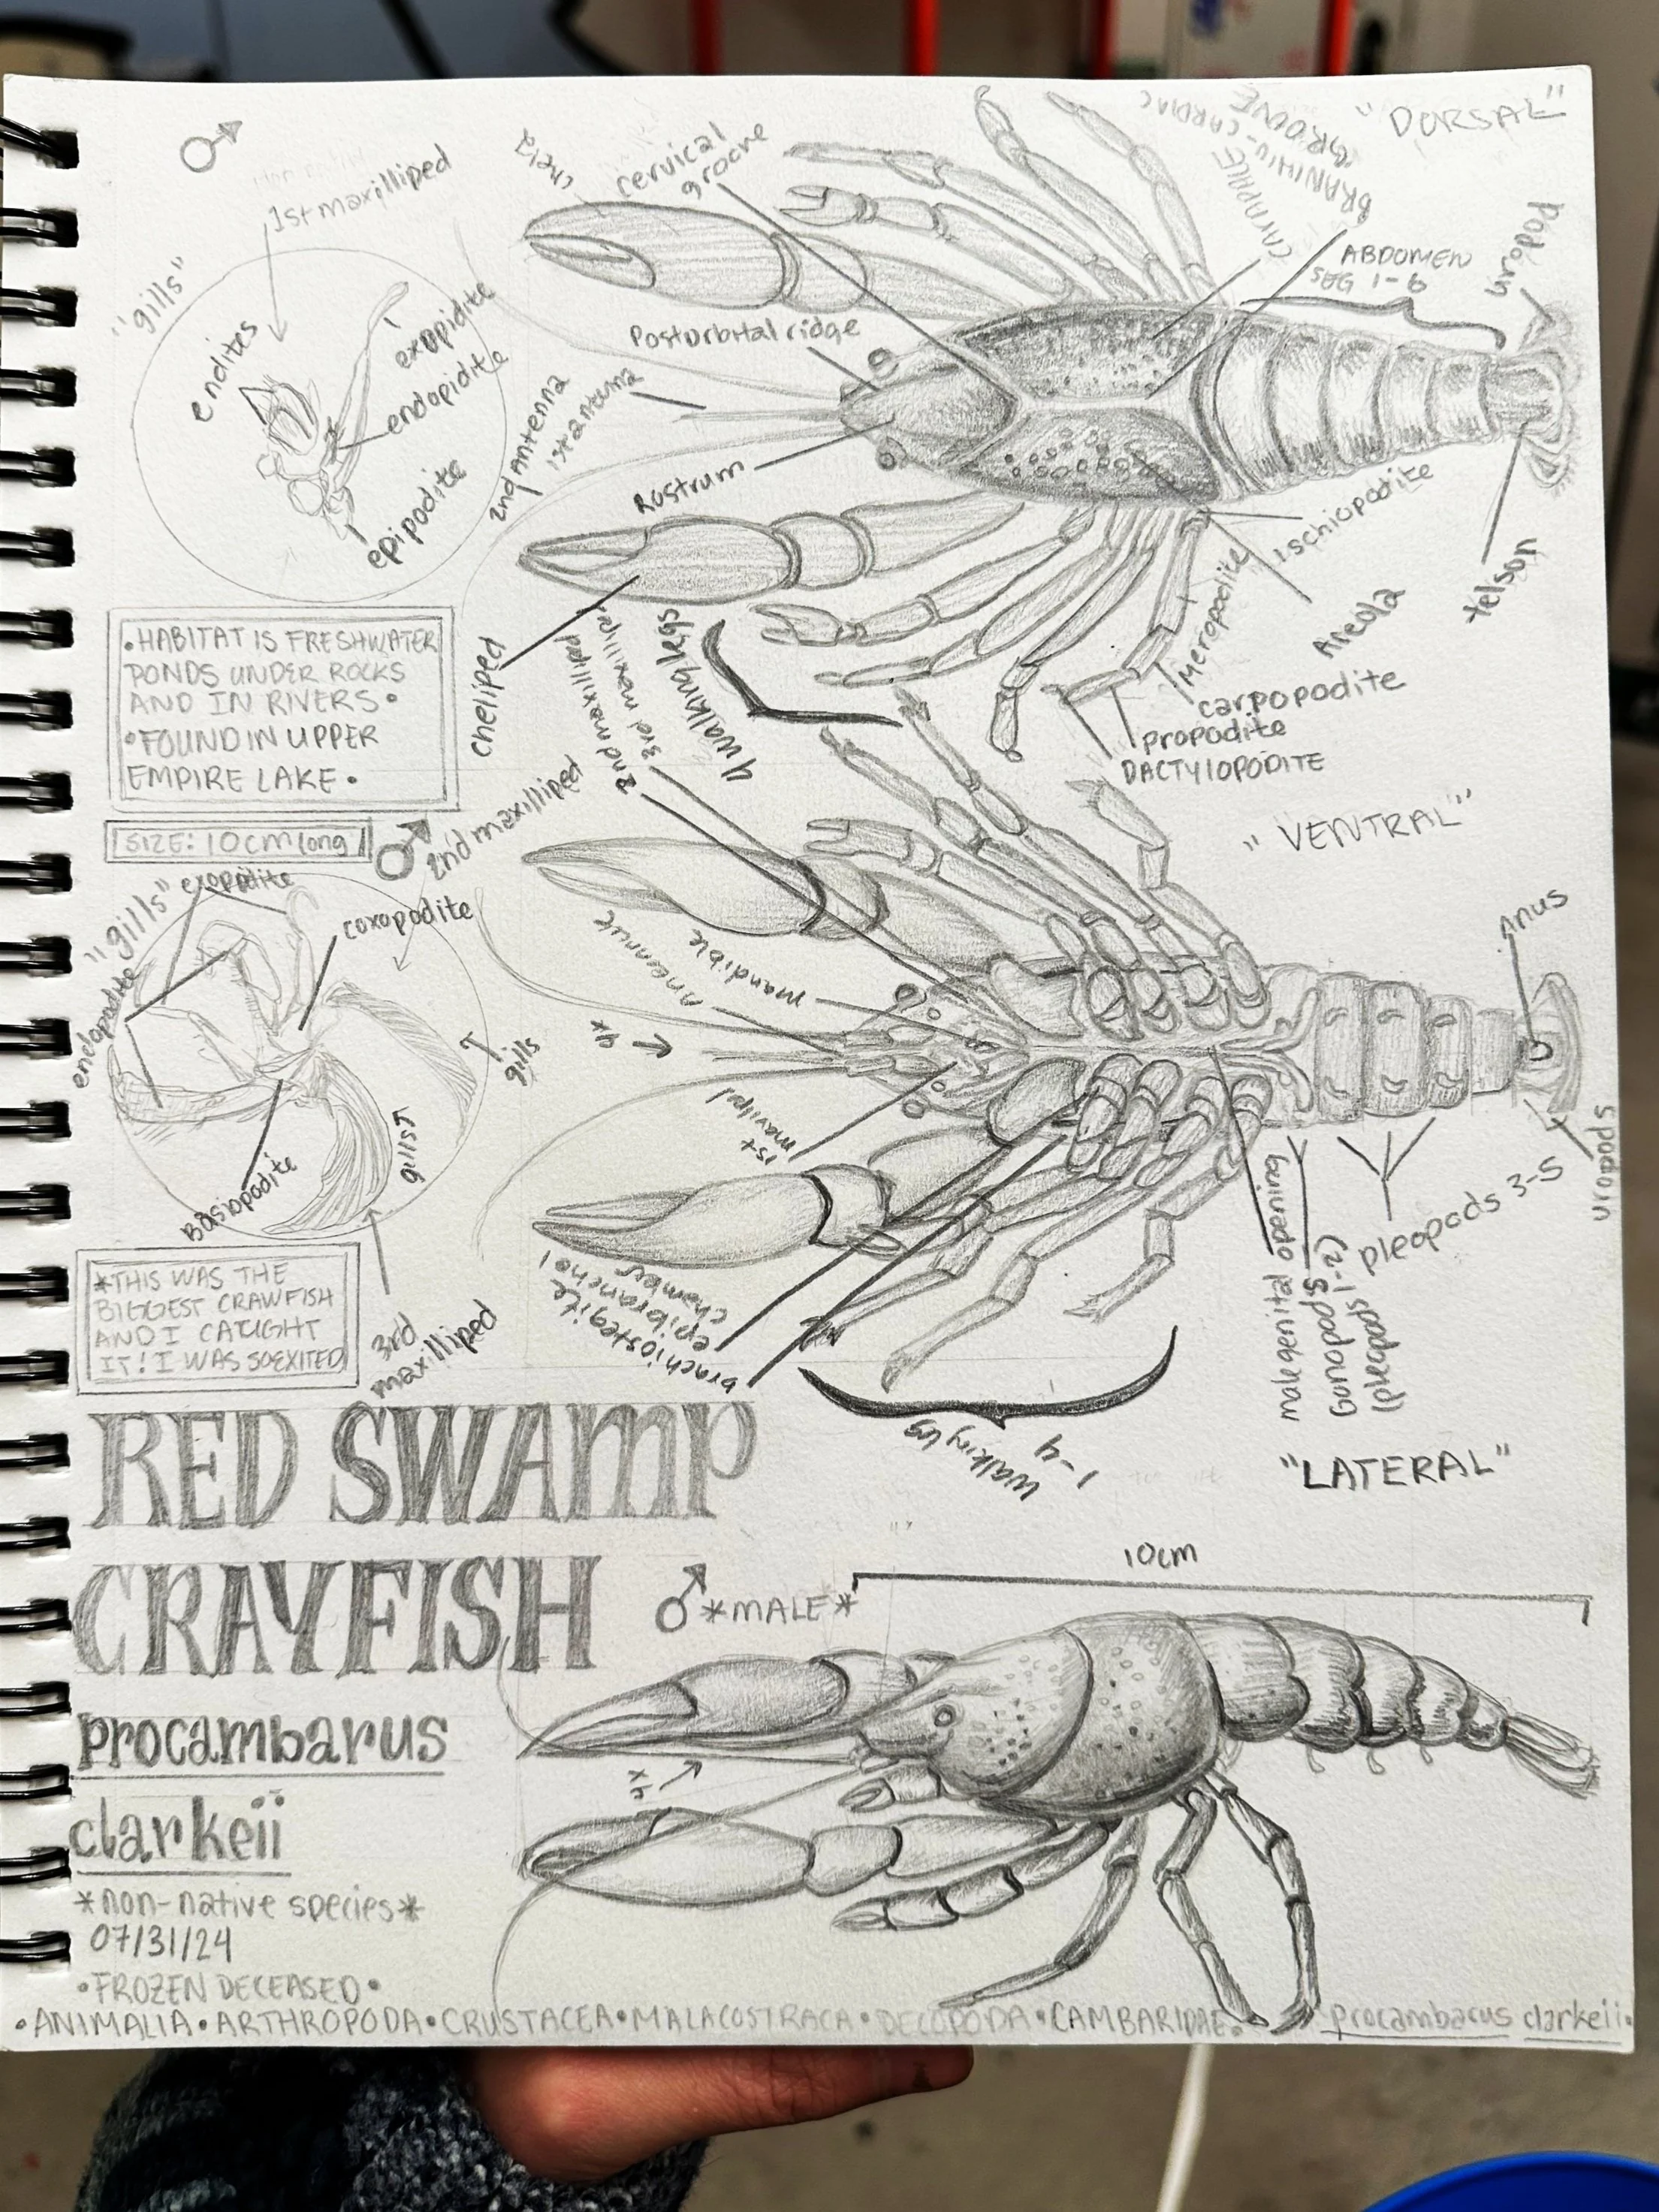 "DORSAL"
♂
1st maxilliped
"gills"
endites
exopidite
endopidite
epipodite
chela
cervical
groove
BRANIHIU-CARDIAC
GROOVE
CARAPACE
ABDOMEN
SEG 1-6
uropod
Posturbital ridge
2nd antenna
1st antenna
Rostrum
cheliped
4 walking legs
Ischiopodite
Meropodite
Areola
carpopodite
propodite
DACTYlOPODITE
telson
•HABITAT IS FRESHWATER
PONDS UNDER ROCKS
AND IN RIVERS•
•FOUND IN UPPER
EMPIRE LAKE•
SIZE: 10cm long
♂
2nd maxilliped
3rd maxilliped
2nd maxilliped
"VENTRAL"
"gills"
exopidite
coxopodite
endopodite
gills
gills
Basiopodite
3rd
maxilliped
mandible
4x
1st
Anus
uropods
pleopods 3-5
male genital opening
Gonopods
(pleopods 1-2)
epibranchial
chamber
1-4
walking leg
*THIS WAS THE
BIGGEST CRAWFISH
AND I CAUGHT
IT! I WAS SOEXITED
RED SWAMP
CRAYFISH
"LATERAL"
10cm
♂ *MALE*
4x
procambarus
clarkeii
*non-native species*
07/31/24
•FROZEN DECEASED•
•ANIMALIA•ARTHROPODA•CRUSTACEA•MALACOSTRACA•DECOPODA•CAMBARIDAE• procambarus clarkeii•